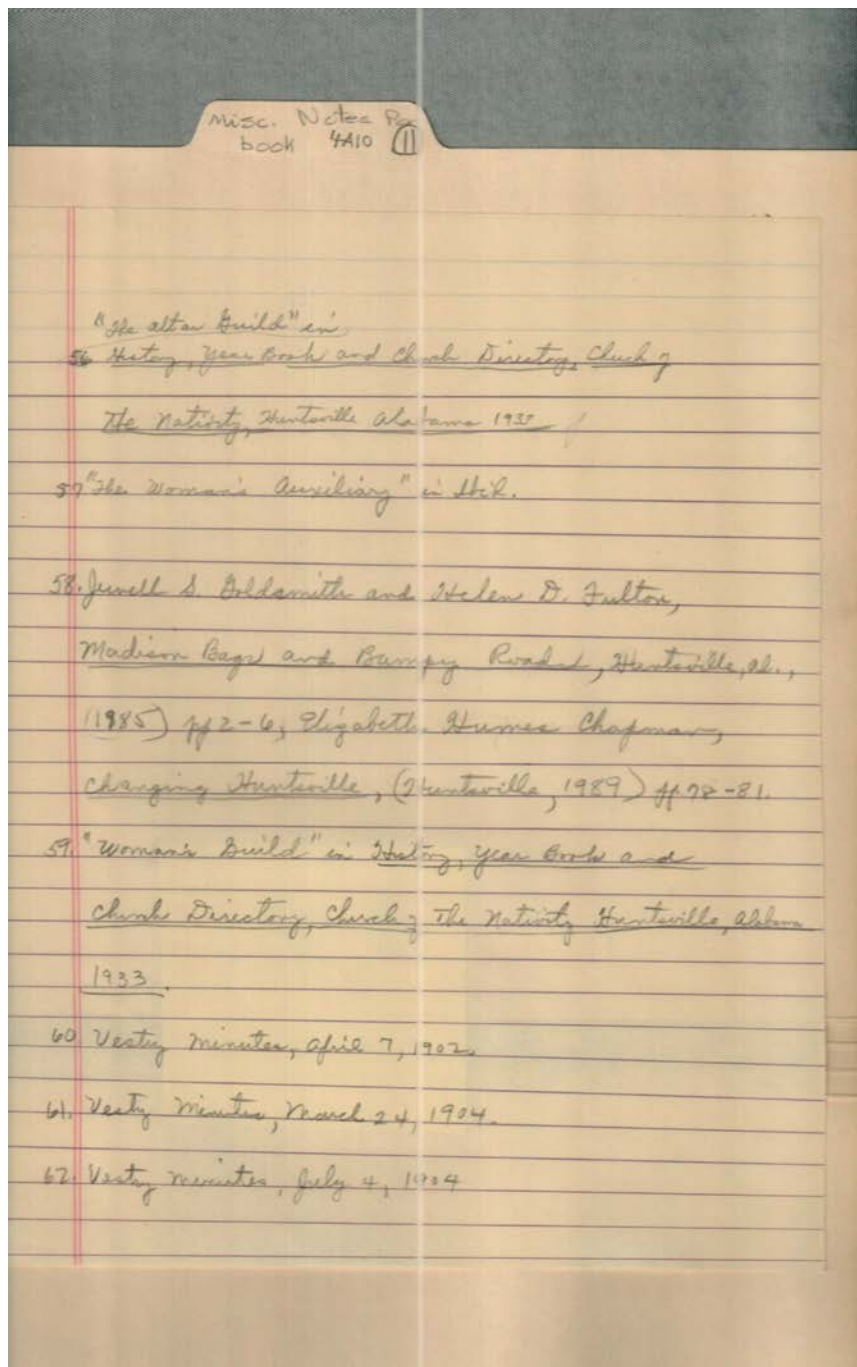 Misc. Notes
book 4A10 11
"The altar Guild" in
56 History, Year Book and Church Directory, Church of
The Nativity, Huntsville Alabama
57 "The Woman's Auxiliary" in Ibid.
58. Jewell S. Goldsmith and Helen D. Fulton,
Madison Bags and Bumpy Roads, Huntsville, Al.,
(1985) pp 2-6, Elizabeth Humes Chapman,
Changing Huntsville, (Huntsville, 1989) pp. 78-81.
59. "Woman's Guild" in History, Year Book and
Church Directory, Church of The Nativity Huntsville, Alabama
1933.
60 Vestry Minutes, April 7, 1902.
61. Vesty Minutes, March 24, 1904.
62. Vestry Minutes, July 4, 1904